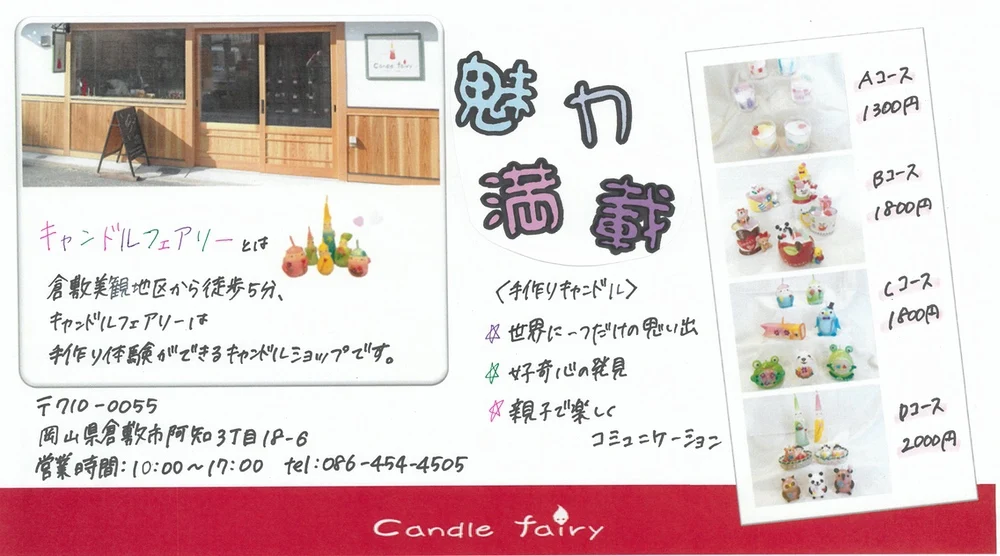 Candle fairy
キャンドルフェアリーとは
倉敷美観地区から徒歩5分、
キャンドルフェアリーは
手作り体験ができるキャンドルショップです。
〒710-0055
岡山県倉敷市阿知3丁目18-6
営業時間:10:00~17:00 tel:086-454-4505
魅力
満載
〈手作りキャンドル〉
☆世界に一つだけの思い出
☆好奇心の発見
☆親子で楽しく
コミュニケーション
Aコース
1300円
Bコース
1800円
Cコース
1800円
Dコース
2000円
Candle fairy